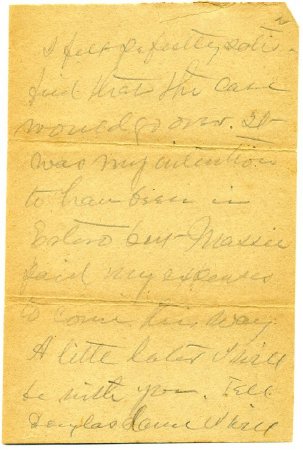 I felt perfectly satis-
fied that the case
would go over. It
was my intention
to have been in
Estero but Massie
paid my expenses
to come this way
A little later I will
be with you. Tell
Douglas I will